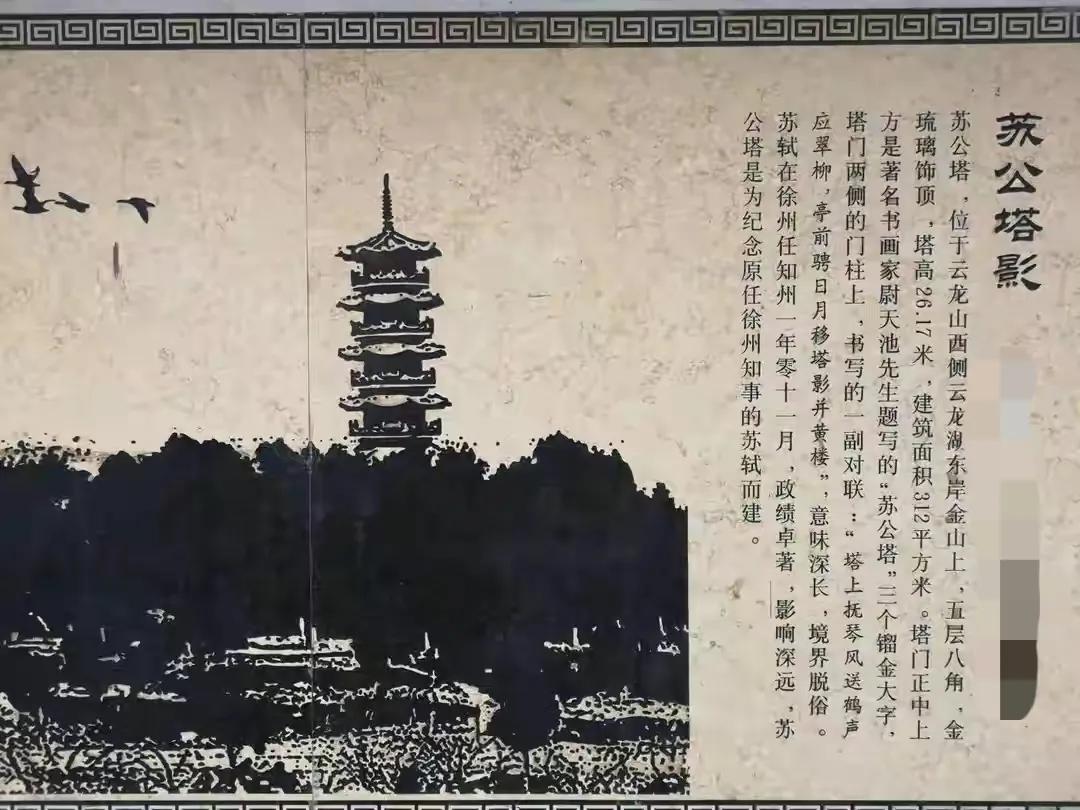 苏公塔影
苏公塔，位于云龙山西侧云龙湖东岸金山上，五层八角，金
琉璃饰顶，塔高26.17米，建筑面积312平方米。塔门正中上
方是著名书画家尉天池先生题写的“苏公塔”三个镏金大字，
塔门两侧的门柱上，书写的一副对联：“塔上抚琴风送鹤声
应翠柳，亭前骋日月移塔影并黄楼”，意味深长，境界脱俗。
苏轼在徐州任知州一年零十一月，政绩卓著，影响深远，苏
公塔是为纪念原任徐州知事的苏轼而建。